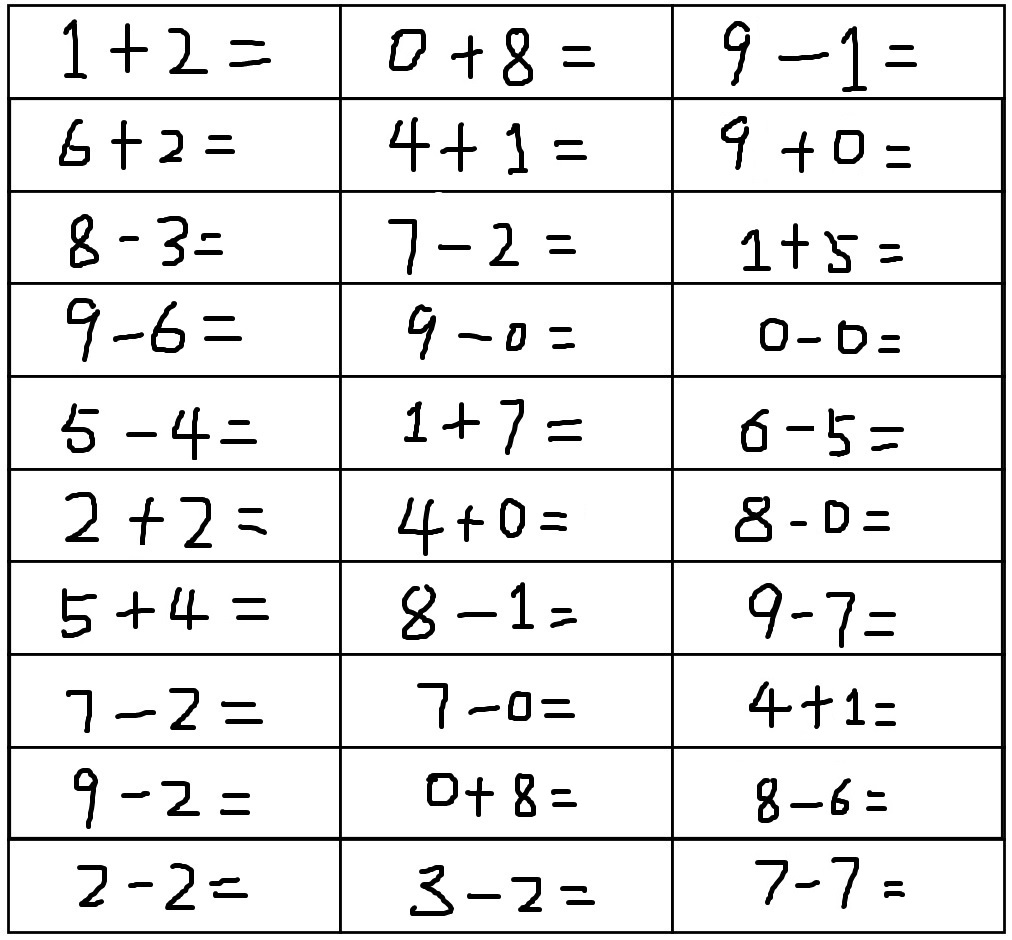 1+2= 0+8= 9-1=
6+2= 4+1= 9+0=
8-3= 7-2= 1+5=
9-6= 9-0= 0-0=
5-4= 1+7= 6-5=
2+2= 4+0= 8-0=
5+4= 8-1= 9-7=
7-2= 7-0= 4+1=
9-2= 0+8= 8-6=
2-2= 3-2= 7-7=